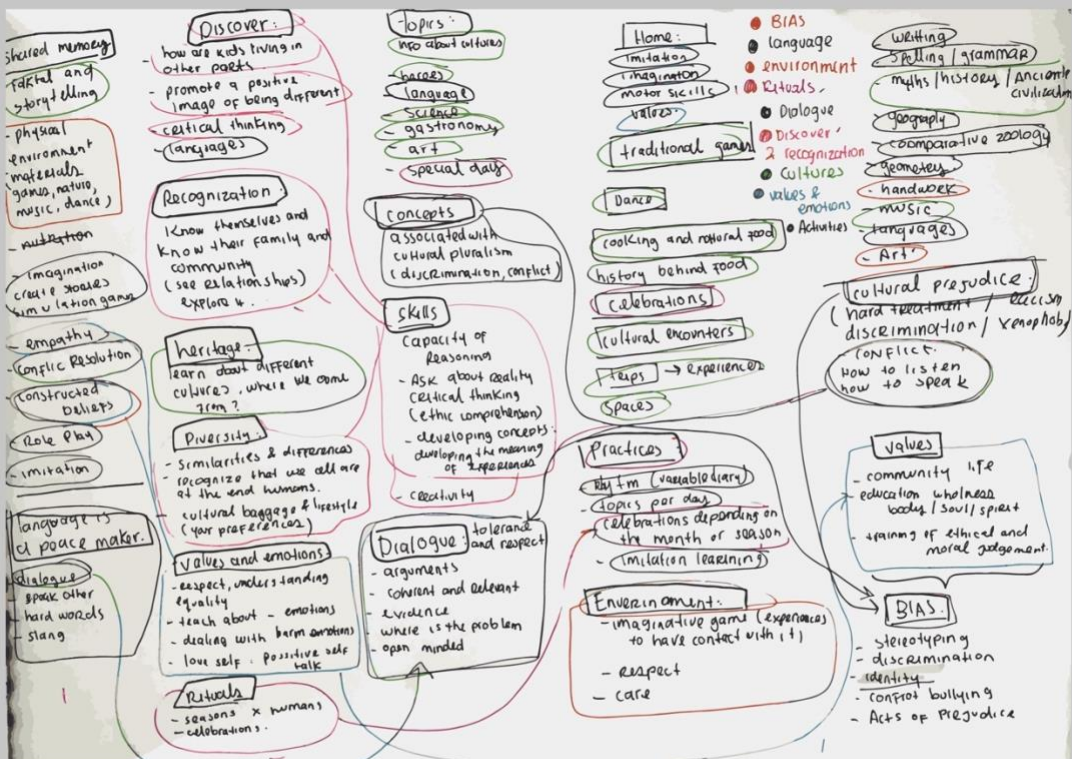 shared memory
storytelling
- physical
environment
- materials
(games, nature,
music, dance)
- nutrition
- imagination
create stories
simulation games
- empathy
- Conflic Resolution
- constructed
beliefs
- Role Play
- imitation
language is
a peace maker.
dialogue
- speak other
- hard words
- slang
Discover:
- how are kids living in
other parts.
- promote a positive
image of being different
- critical thinking
- languages
Recognization:
Know themselves and
know their family and
community
(see relationships)
explore 4.
heritage:
learn about different
cultures, where we come
from?
Diversity:
- similarities & differences
- recognize that we all are
at the end humans.
- cultural baggage & lifestyle
(your preferences)
values and emotions
- respect, understanding
equality
- teach about - emotions
- dealing with harm emotions
- love self. possitive self
talk
Rituals
- seasons x humans
- celebrations.
Topics:
info about cultures
- language
- science
- gastronomy
- art
- special day
concepts
associated with
cultural pluralism
(discrimination, conflict)
skills
capacity of
Reasoning
- Ask about reality
critical thinking
(ethic comprehension)
- developing concepts:
developing the meaning
of experiences
- creativity
Dialogue: tolerance
and respect
- arguments
- coherent and relevant
- evidence
- where is the problem
- open minded
Home:
imitation
imagination
motor skills
values.
traditional games
Dance
cooking and natural food
history behind food
celebrations
cultural encounters
trips → experiences
spaces
Practices
- Rhytm (variable diary)
- topics per day
- celebrations depending on
the month or season
- imitation learning
Enverinoment:
- imaginative game (experiences
to have contact with it)
- respect
- care
BIAS
language
environment
Rituals.
Dialogue
Discover
2 recognization
Cultures
values &
emotions
Activities
- writting
- spelling / grammar
- myths / history / Anciente
civilization
- geography
- coomparative zoology
- geometry
- handwork
- music
- languages
- Art
cultural prejudice:
(hard treatment / racism
discrimination / xenophoby
- CONFLICT.
How to listen
how to speak
values
- community life
- education wholness
body / soul / spirit
- training of ethical and
moral judgement.
BIAS.
- stereotyping
- discrimination
- identity
- confrot bullying
- Acts of Prejudice